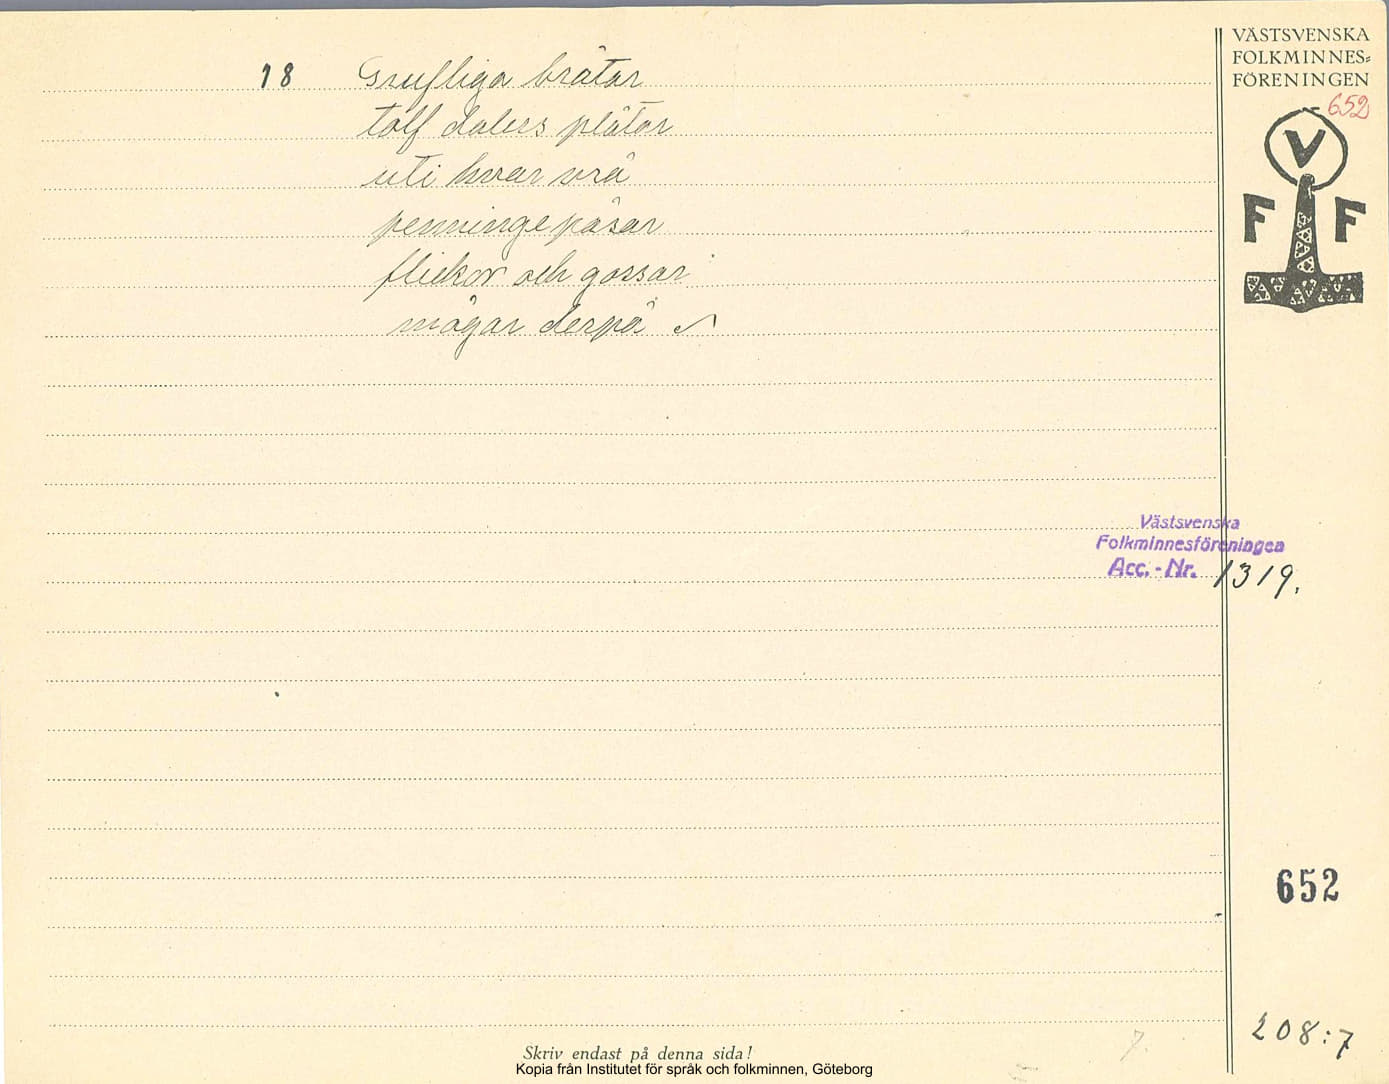 18 Grufliga bråtar
tolf dalers plåtar
uti hvar vrå
penningepåsar
flickor och gossar
mågar derpå
VÄSTSVENSKA
FOLKMINNES=
FÖRENINGEN
652
V
F F
Västsvenska
Folkminnesföreningen
Acc.-Nr. 1319.
652
208:7
7.
Skriv endast på denna sida!
Kopia från Institutet för språk och folkminnen, Göteborg